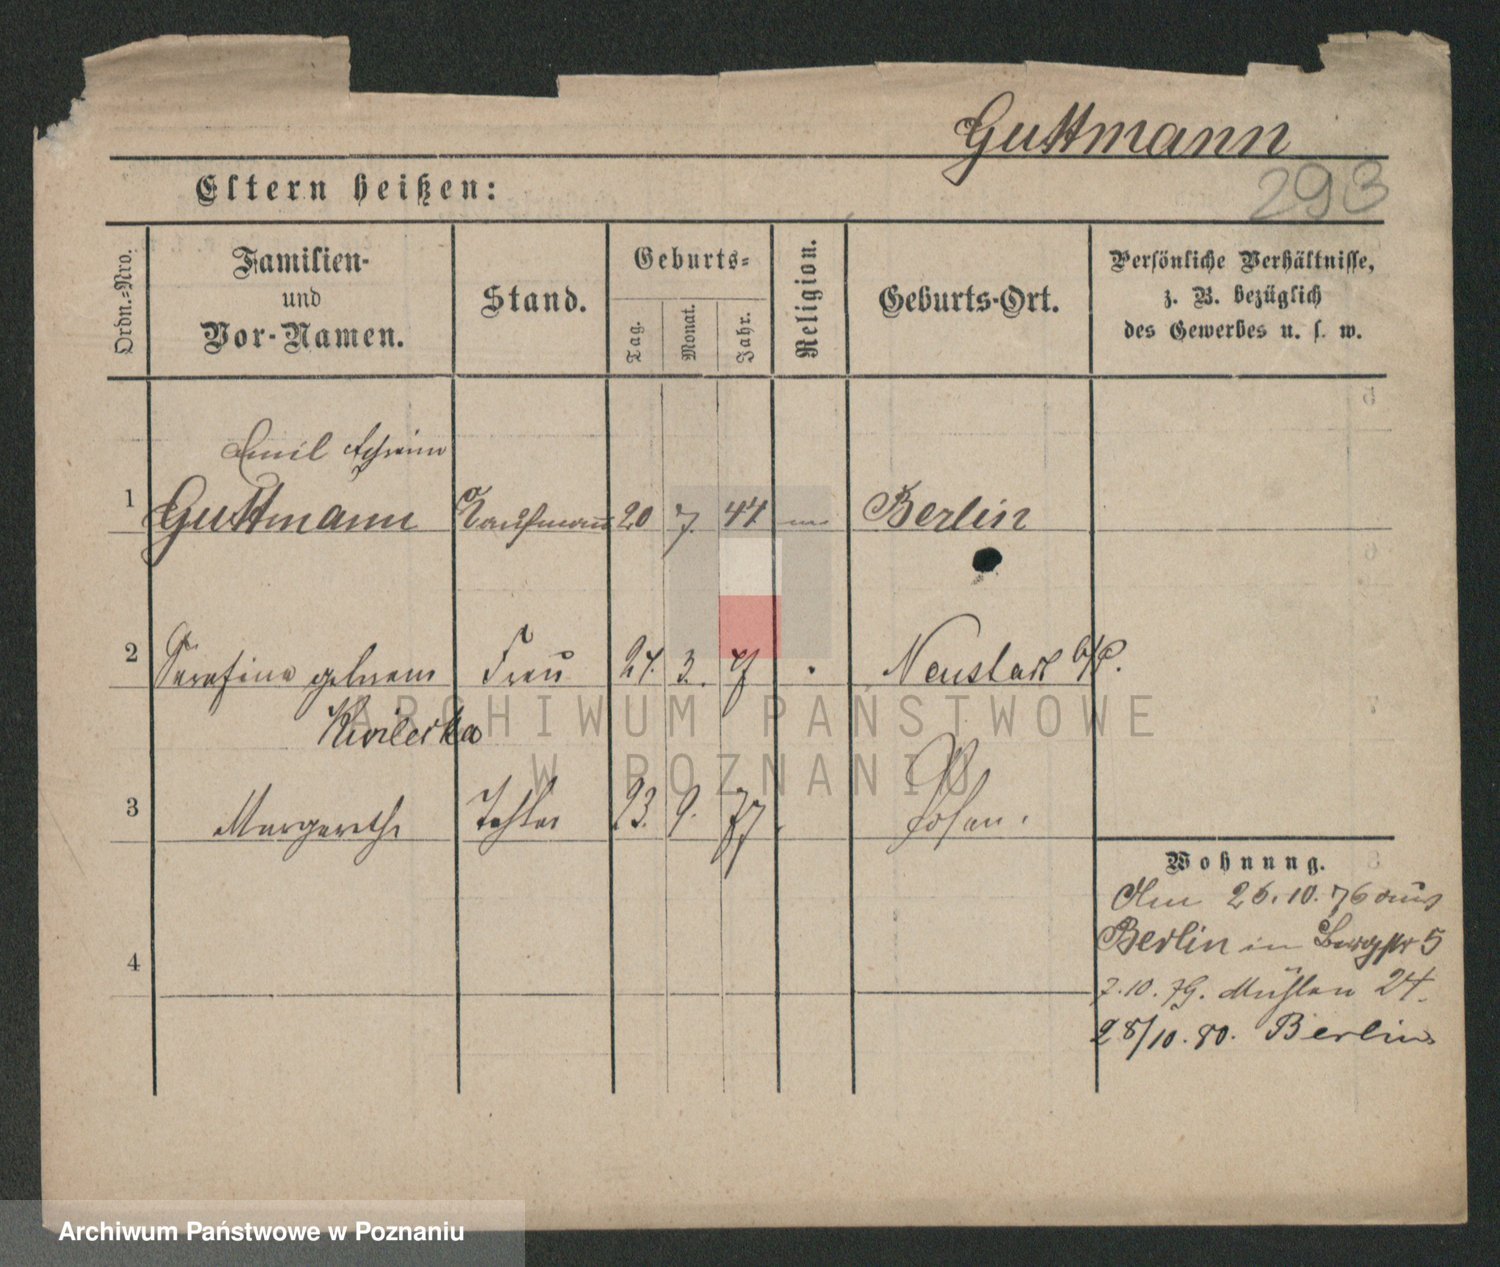 Guttmann
293
Eltern heißen:
Ordn.-Nro.
Familien-
und
Vor-Namen.
Stand.
Geburts-
Tag.
Monat.
Jahr.
Religion.
Geburts-Ort.
Persönliche Verhältnisse,
z. B. bezüglich
des Gewerbes u. s. w.
Emil
1 Guttmann Kaufmann 20 7. 44 Berlin
2 Serafine geborene Frau 24. 3. Neustadt b/P.
Kwilecka
3 Margarethe Tochter 23. 9. 77 Posen.
4
Wohnung.
Am 26.10.76 aus
Berlin in Bergstr 5
7.10.79. Mühlen 24.
28/10.80. Berlin
ARCHIWUM PAŃSTWOWE
W POZNANIU
Archiwum Państwowe w Poznaniu